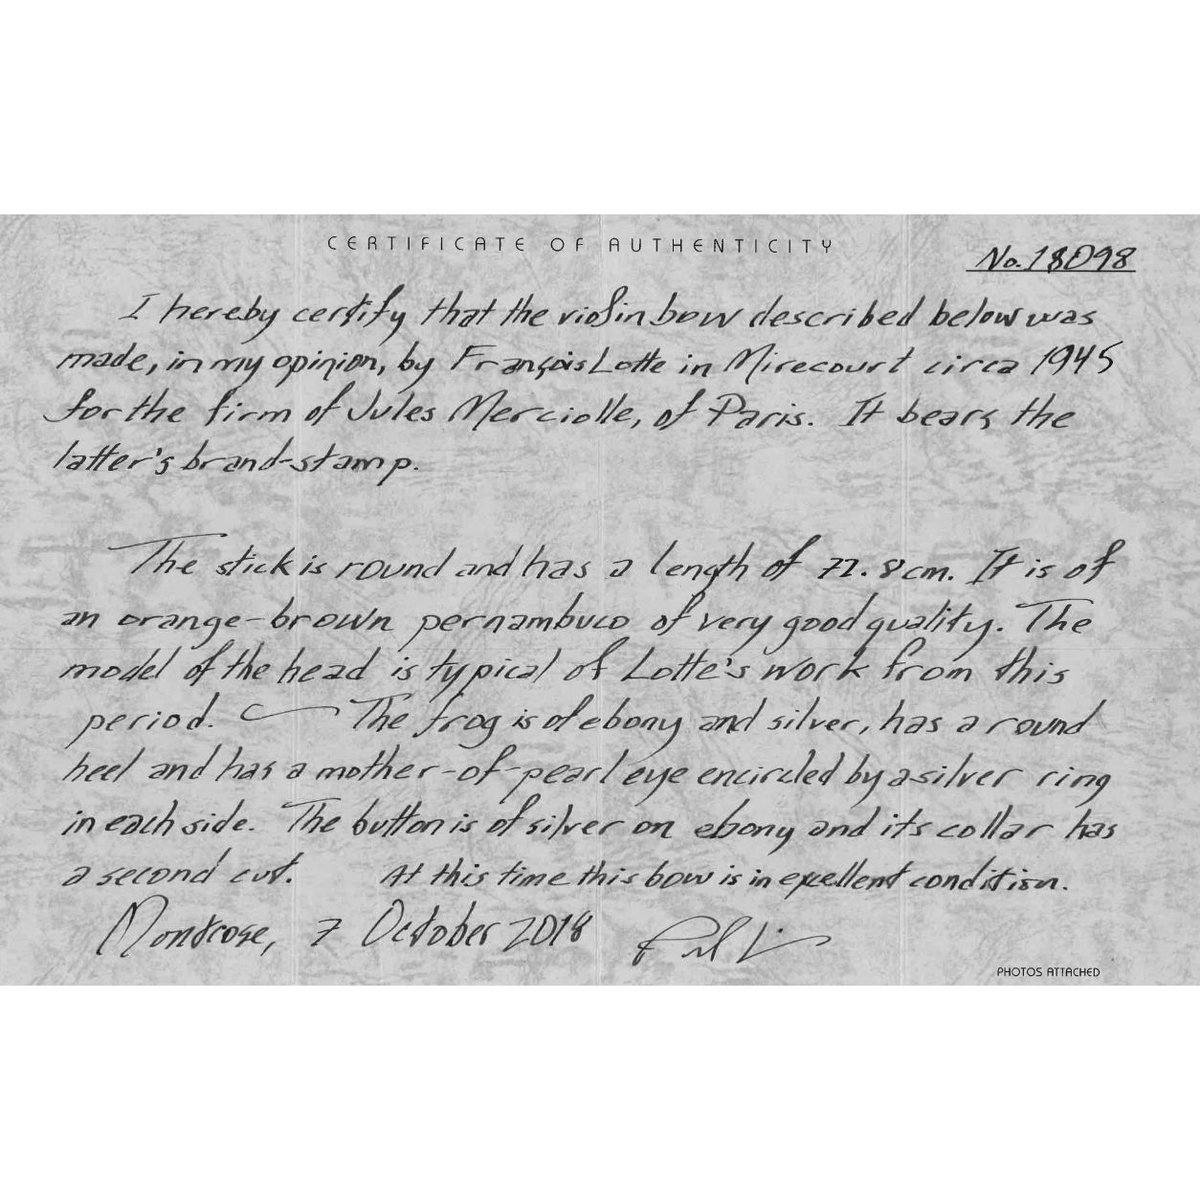 CERTIFICATE OF AUTHENTICITY
No. 18098
I hereby certify that the violin bow described below was
made, in my opinion, by François Lotte in Mirecourt circa 1945
for the firm of Jules Merciolle, of Paris. It bears the
latter's brand-stamp.
The stick is round and has a length of 72.8cm. It is of
an orange-brown pernambuco of very good quality. The
model of the head is typical of Lotte's work from this
period. The frog is of ebony and silver, has a round
heel and has a mother-of-pearl eye encircled by a silver ring
in each side. The button is of silver on ebony and its collar has
a second cut. At this time this bow is in excellent condition.
Montrose, 7 October 2018
PHOTOS ATTACHED